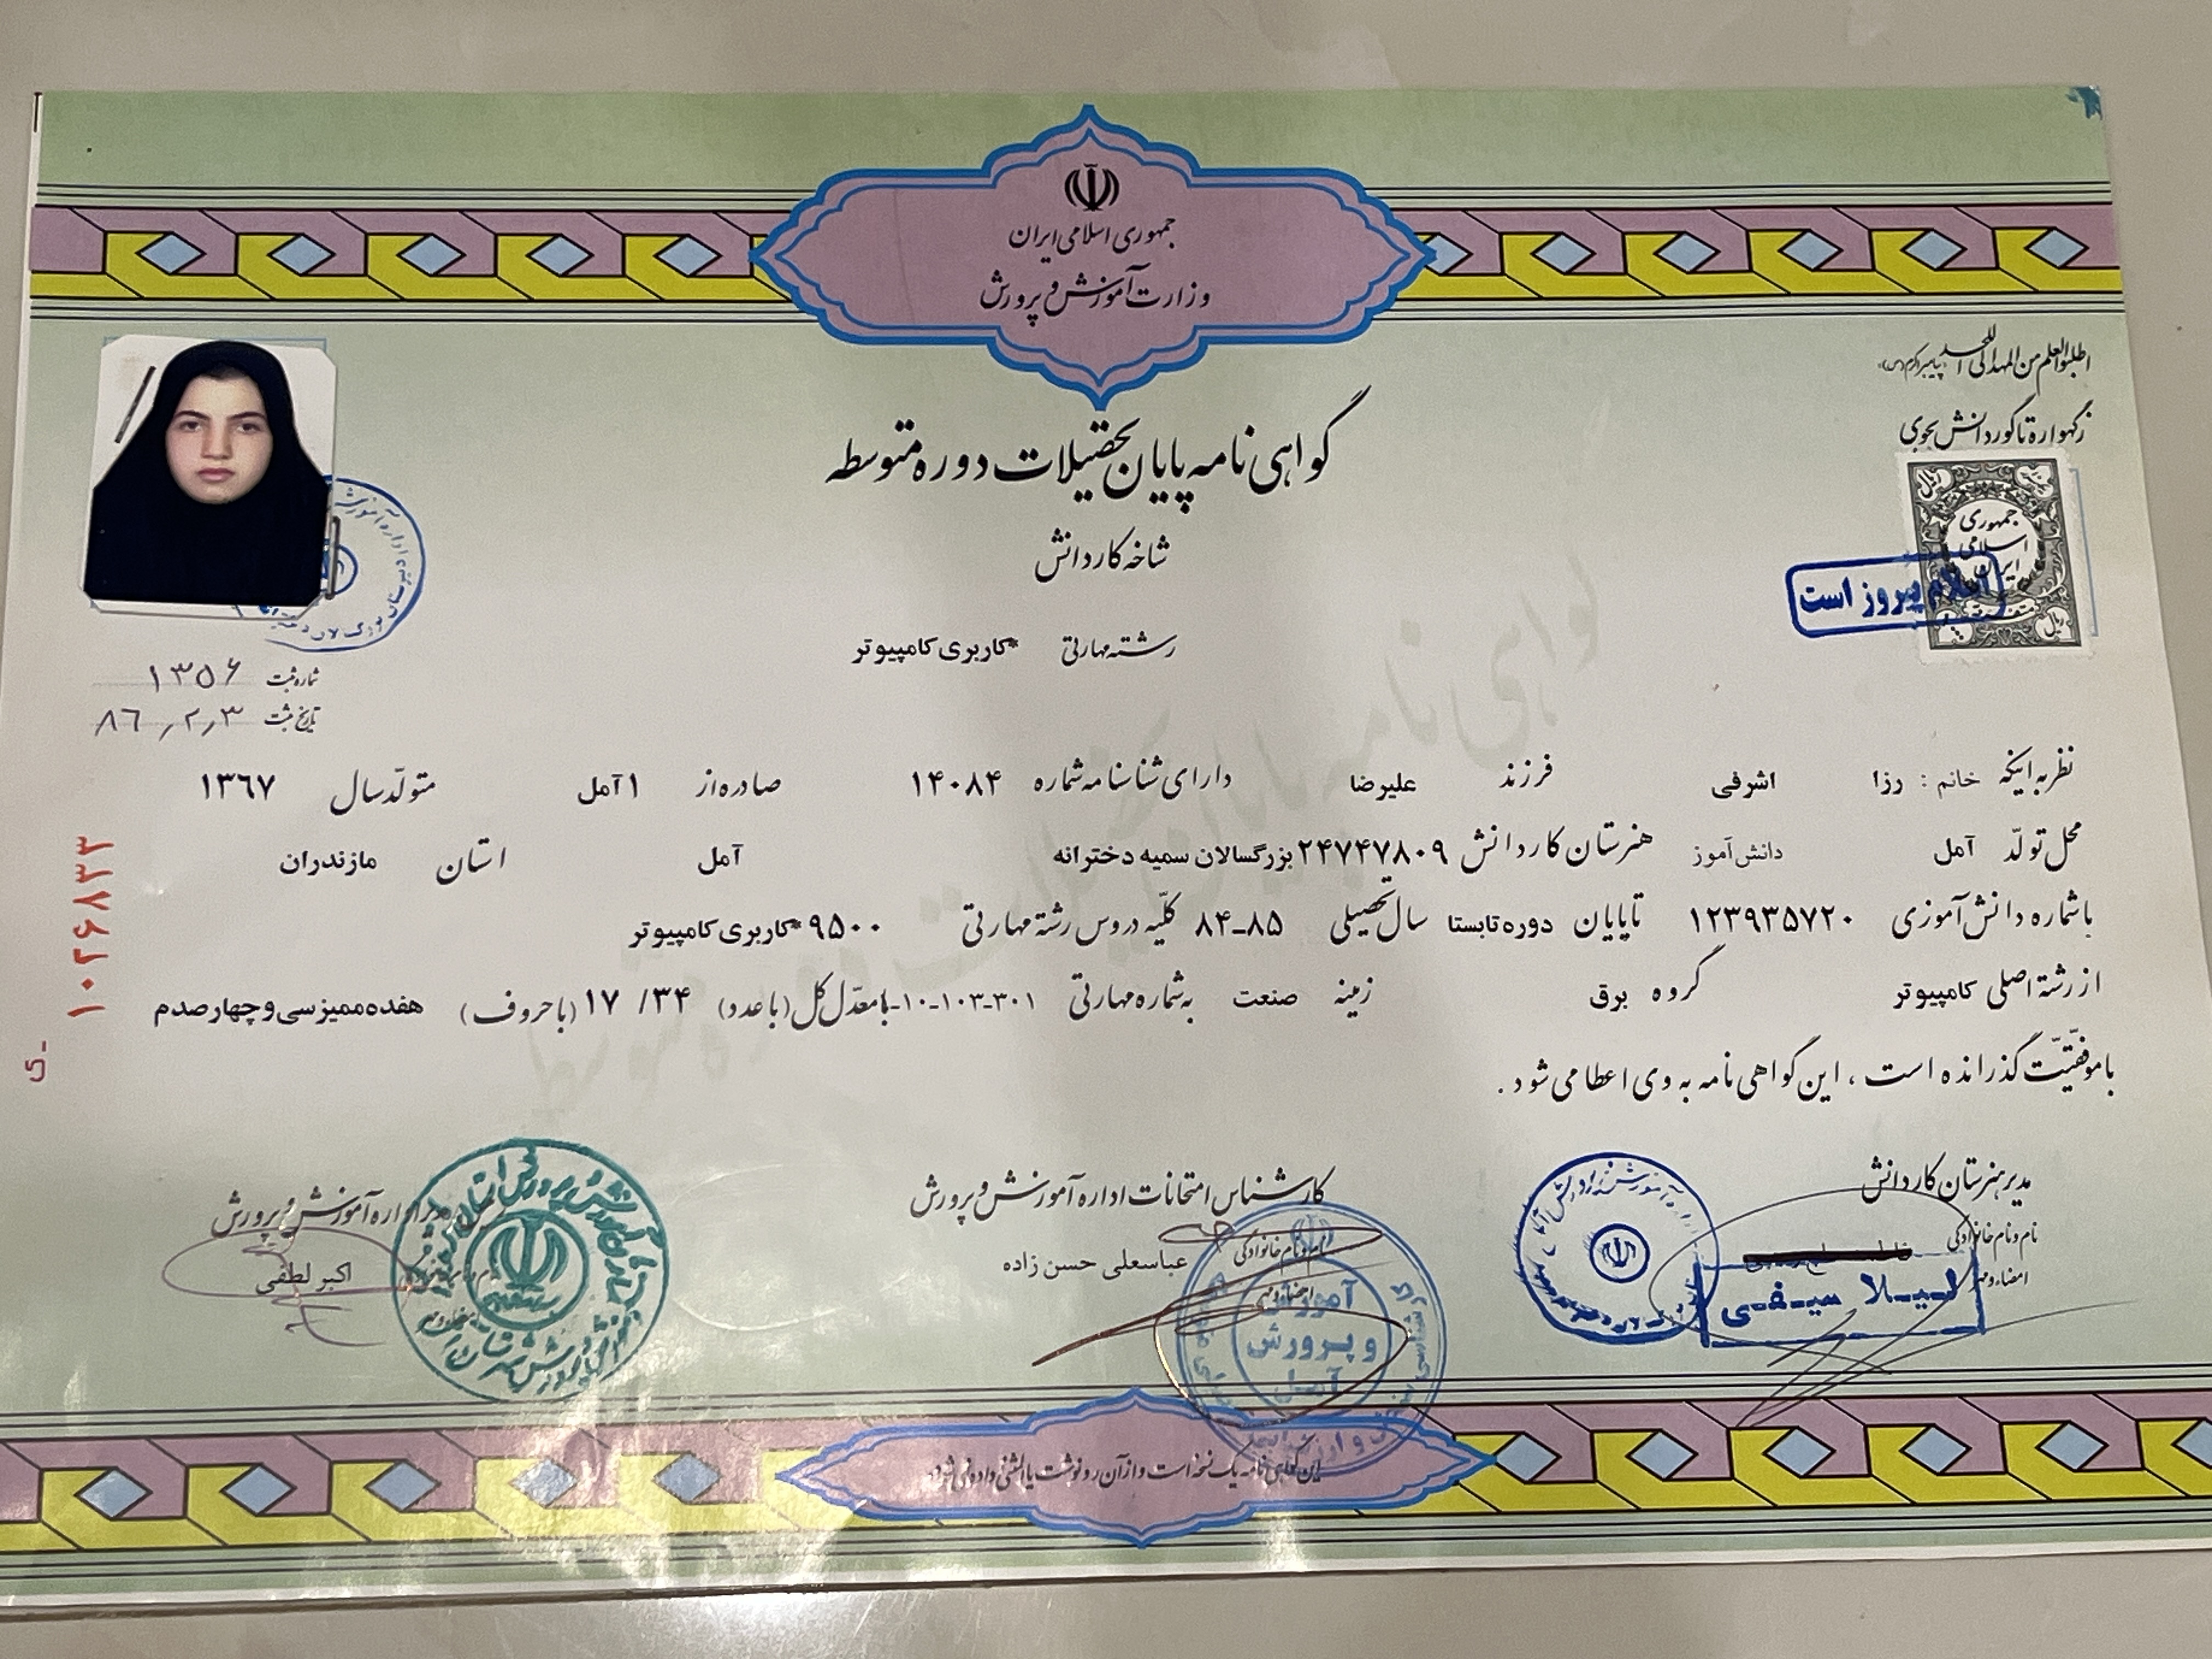 جمهوری اسلامی ایران
وزارت آموزش و پرورش
اطلبوا العلم من المهد الی اللحد پیامبر اکرم (ص)
زگهواره تا گور دانش بجوی
جمهوری
اسلامی
ایران
ریال
اسلام پیروز است
گواهی نامه پایان تحصیلات دوره متوسطه
شاخه کاردانش
رشته مهارتی *کاربری کامپیوتر
شماره ثبت ۱۳۵۶
تاریخ ثبت ۸۶/۲/۳
نظر به اینکه خانم : رزا اشرفی فرزند علیرضا دارای شناسنامه شماره ۱۴۰۸۴ صادره از ۱ آمل متولّد سال ۱۳۶۷
محل تولّد آمل دانش آموز هنرستان کاردانش ۲۴۷۴۷۸۰۹ بزرگسالان سمیه دخترانه آمل استان مازندران
با شماره دانش آموزی ۱۲۳۹۳۵۷۲۰ تا پایان دوره تابستا سال تحصیلی ۸۵-۸۴ کلّیه دروس رشته مهارتی ۹۵۰۰ *کاربری کامپیوتر
از رشته اصلی کامپیوتر گروه برق زمینه صنعت به شماره مهارتی ۳۰۱-۱۰۳-۱۰-۱ با معدّل کل (با عدد) ۱۷/۳۴ (با حروف) هفده ممیز سی و چهار صدم
با موفقیّت گذرانده است ، این گواهی نامه به وی اعطا می شود .
۱۰۲۶۸۳۳
مدیر هنرستان کاردانش
نام و نام خانوادگی
امضاء و مهر
لیلا سیفی
کارشناس امتحانات اداره آموزش و پرورش
نام و نام خانوادگی عباسعلی حسن زاده
امضاء و مهر
آموزش
و پرورش
آمل
مدیر اداره آموزش و پرورش
اکبر لطفی
این گواهی نامه یک نسخه است و از آن رونوشت یا المثنی داده نمی شود.